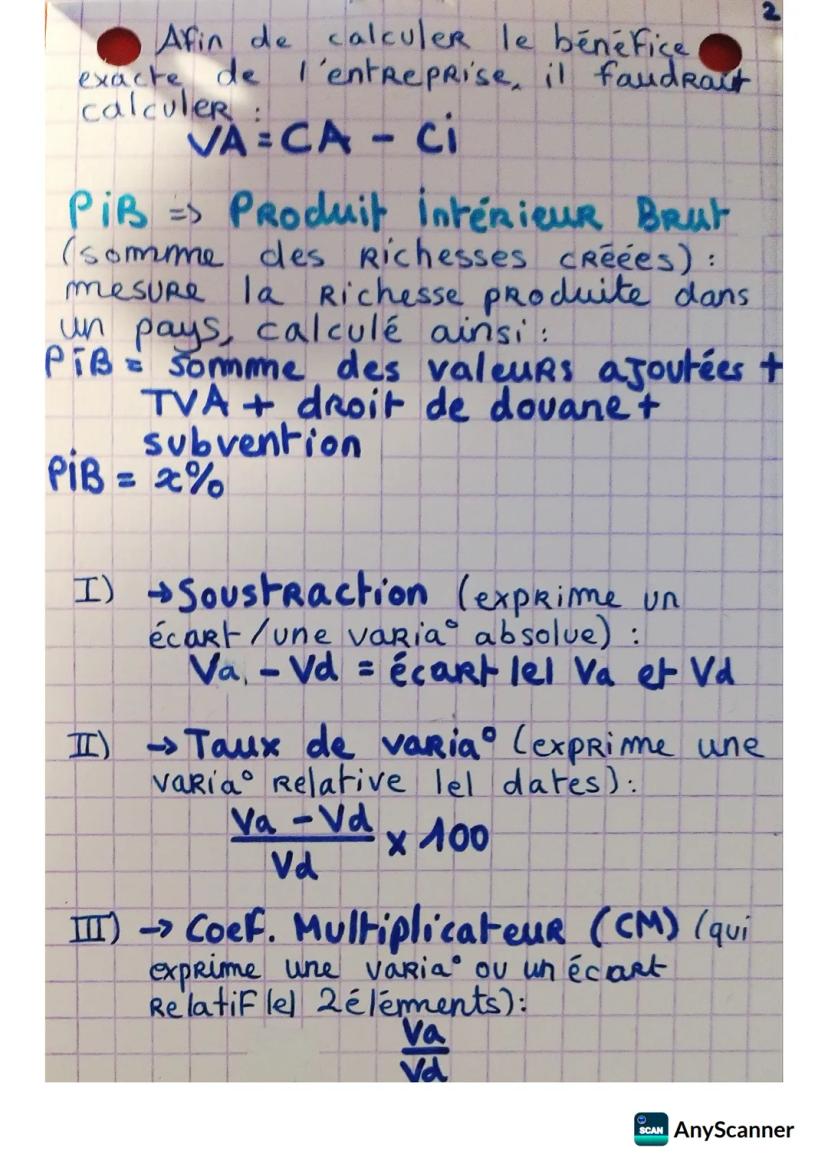 2
Afin de calculer le bénéfice
exacte de l'entreprise, il faudrait
calculer :
VA = CA - Ci
PiB => Produit intérieur Brut
(somme des richesses créées) :
mesure la richesse produite dans
un pays, calculé ainsi :
PiB = somme des valeurs ajoutées +
TVA + droit de douane +
subvention
PiB = x%
I) → Soustraction (exprime un
écart/une varia° absolue) :
Va - Vd = écart lel Va et Vd
II) → Taux de varia° (exprime une
varia° relative lel dates) :
Va - Vd
Vd
x 100
III) → Coef. Multiplicateur (CM) (qui
exprime une varia° ou un écart
relatif lel 2 éléments) :
Va
Vd
SCAN AnyScanner